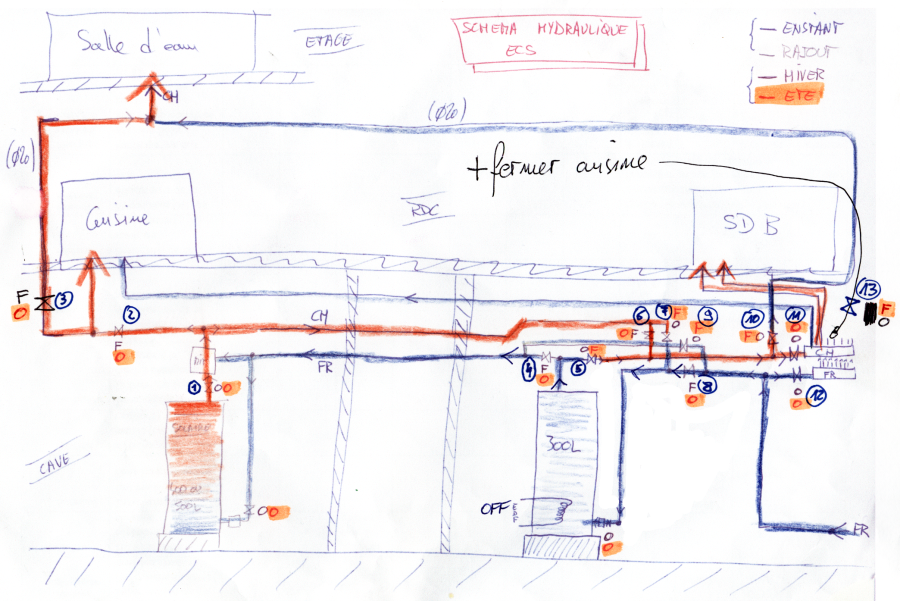 Salle d'eau
ETAGE
SCHEMA HYDRAULIQUE
ECS
EXISTANT
RAJOUT
HIVER
ETE
CH
(Ø20)
(Ø20)
+ fermer cuisine
Cuisine
RDC
SDB
F
O
3
2
F
O
CH
6
7
F
O
9
F
O
10
11
O
O
13
F
O
F
O
F
O
CH
FR
FR
4
F
O
5
O
F
8
F
O
12
O
O
1
O
O
SOLAIRE
300L
500L
CAVE
OFF
O
O
O
O
FR